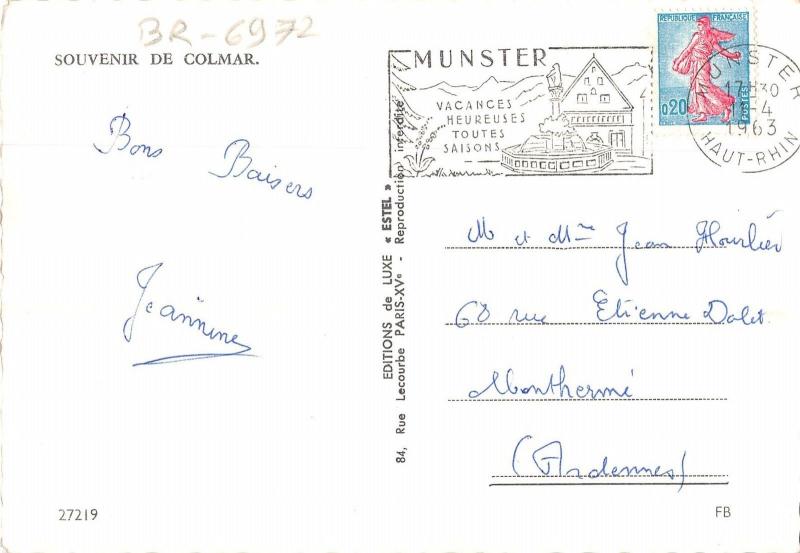 BR-6972
SOUVENIR DE COLMAR.
Bons Baisers
Jeannine
27219
EDITIONS de LUXE « ESTEL »
84, Rue Lecourbe PARIS-XVe - Reproduction interdite
MUNSTER
VACANCES
HEUREUSES
TOUTES
SAISONS
REPUBLIQUE FRANÇAISE
0,20
POSTES
MUNSTER
17H30
4
1963
HAUT-RHIN
M et Mme Jean Hourlier
68 rue Etienne Dolet
Monthermé
(Ardennes)
FB